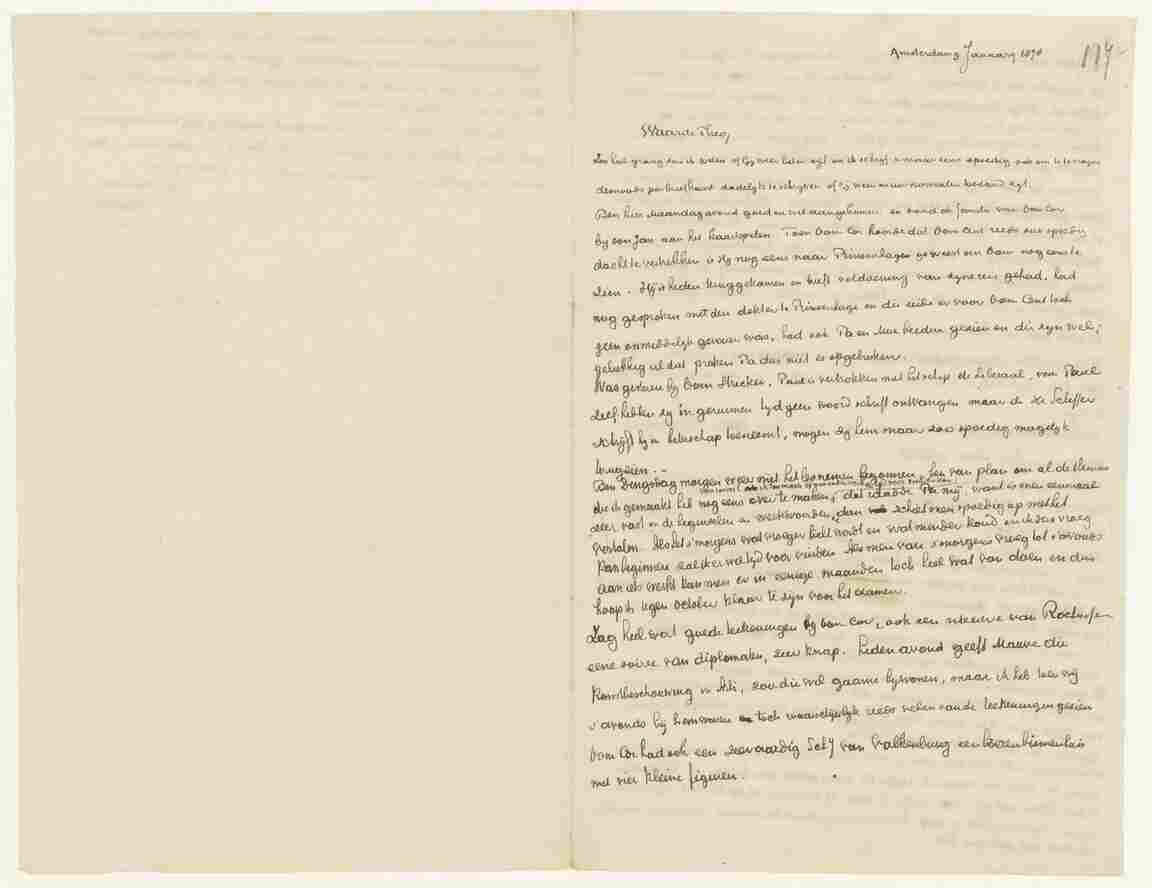 Amsterdam January 1878
114
Waarde Theo,
Zou heel graag van U weten of gij weer beter zijt en ik schrijf u maar eens spoedig ook om U te vragen
desnoods per briefkaart dadelijk te schrijven of gij weer in uw normalen toestand zijt.
Ben hier Maandag avond goed en wel aangekomen en vond de familie van Oom Cor
bij Oom Jan aan het kaartspelen. Toen Oom Cor hoorde dat Oom Cent reeds zoo spoedig
dacht te vertrekken is hij nog eens naar Prinsenhage geweest om Oom nog eens te
zien. Hij is heden teruggekomen en heeft voldoening van zijne reis gehad, had
nog gesproken met den dokter te Prinsenhage en die zeide er voor Oom Cent toch
geen onmiddelijk gevaar was, had ook Pa en Moe heeden gezien en die zijn wel;
gelukkig al dat praten Pa dus niet is opgebroken.
Was gisteren bij Oom Stricker, Paul is vertrokken met het schip de Liberaal, van Paul
zelf hebben zij in geruimen tijd geen woord schrift ontvangen maar de Hr Scheffer
schrijft hij in beterschap toeneemt, mogen zij hem maar zoo spoedig mogelijk
terugzien. --
Ben Dingsdag morgen weer met het les nemen begonnen, ben van plan om al de themas
die ik gemaakt heb nog eens over te maken, dat raadde Pa mij, want is men eenmaal
zeker vast in de beginselen en werkwoorden, dan schiet men spoedig op met het
vertalen. Als het s'morgens wat vroeger licht wordt en wat minder koud en ik dus vroeg
kan beginnen zal ik er wel tijd voor vinden. Als men van s'morgens vroeg tot s'avonds
aan iets werkt kan men er in eenige maanden toch heel wat van doen en dus
hoop ik tegen October klaar te zijn voor het examen.
Zag heel wat goede teekeningen bij Oom Cor, ook een nieuwe van Rochussen
eene soiree van diplomaten, zeer knap. Heden avond geeft Mauve die
kunstbeschouwing in Arti, zou die wel gaarne bijwonen, maar ik heb toen wij
s'avonds bij hem waren toch waarschijnlijk reeds velen van de teekeningen gezien
Oom Cor had ook een zeer aardig Schij van Valkenburg een boerenbinnenhuis
met vier kleine figuren.